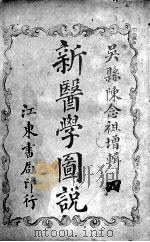 吳縣陳念祖增輯
新醫學圖說
江東書局印行